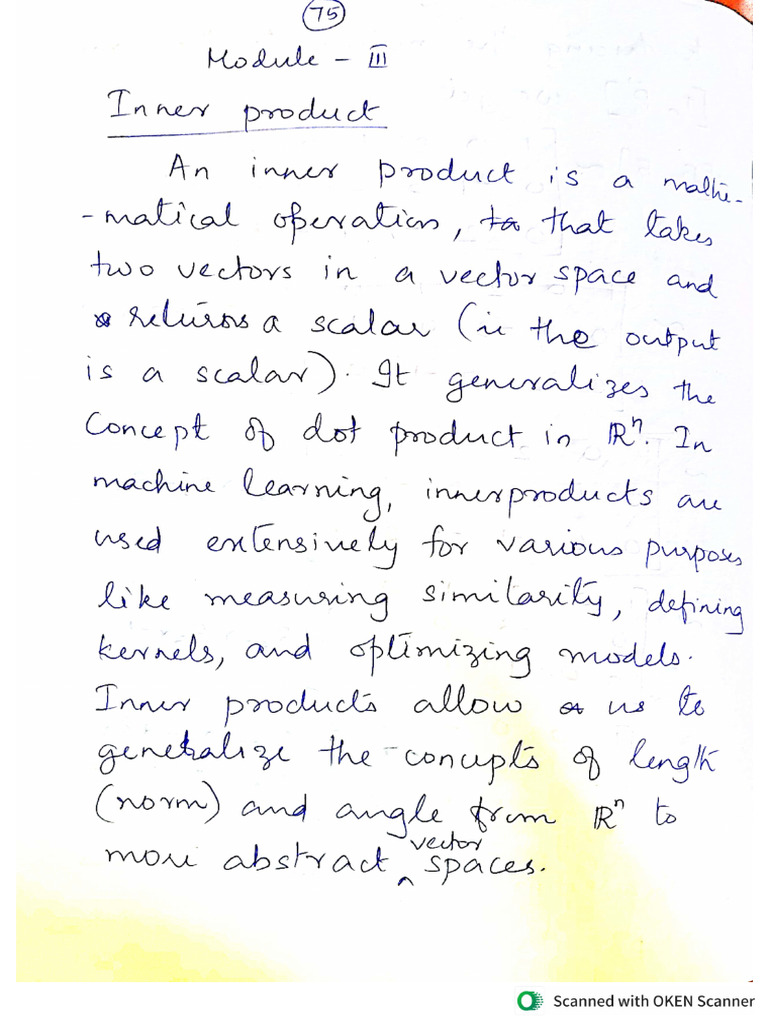 75
Module - III
Inner product
An inner product is a mathe-
-matical operation, to that takes
two vectors in a vector space and
returns a scalar (ie the output
is a scalar). It generalizes the
Concept of dot product in ℝⁿ. In
machine learning, innerproducts are
used extensively for various purposes
like measuring similarity, defining
kernels, and optimizing models.
Inner products allow us to
generalize the concepts of length
(norm) and angle from ℝⁿ to
more abstract vector spaces.
Scanned with OKEN Scanner